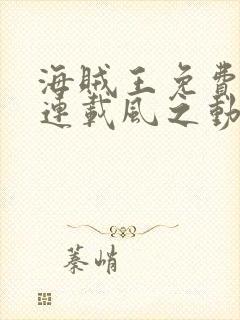 海賊王免費
連載風之動
蓁峭